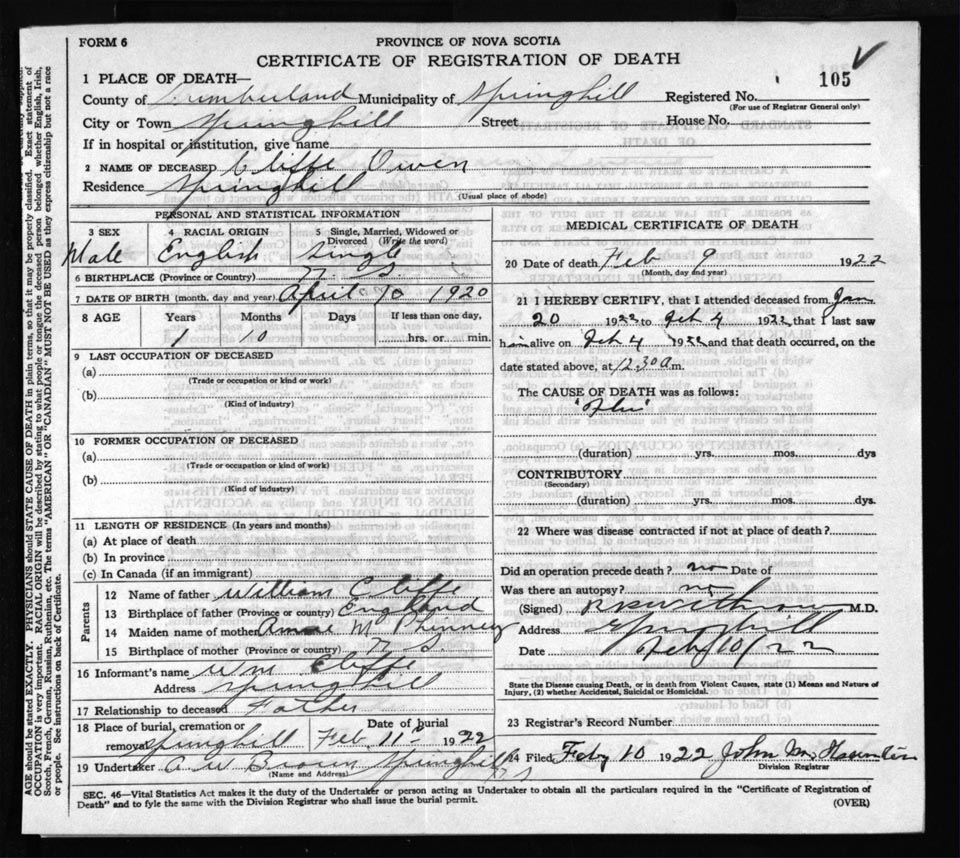 FORM 6
PROVINCE OF NOVA SCOTIA
CERTIFICATE OF REGISTRATION OF DEATH
105
1 PLACE OF DEATH—
County of Cumberland Municipality of Springhill Registered No.
(For use of Registrar General only)
City or Town Springhill Street House No.
If in hospital or institution, give name
2 NAME OF DECEASED Cliffe Owen
Residence Springhill
(Usual place of abode)
PERSONAL AND STATISTICAL INFORMATION
3 SEX 4 RACIAL ORIGIN 5 Single, Married, Widowed or Divorced (Write the word)
Male English Single
6 BIRTHPLACE (Province or Country) N. S.
7 DATE OF BIRTH (month, day and year) April 10 1920
8 AGE Years Months Days If less than one day,
1 10 hrs. or min.
9 LAST OCCUPATION OF DECEASED
(a)
(Trade or occupation or kind or work)
(b)
(Kind of industry)
10 FORMER OCCUPATION OF DECEASED
(a)
(Trade or occupation or kind of work)
(b)
(Kind of industry)
11 LENGTH OF RESIDENCE (In years and months)
(a) At place of death
(b) In province
(c) In Canada (if an immigrant)
Parents
12 Name of father William Cliffe
13 Birthplace of father (Province or country) England
14 Maiden name of mother M Phinney
15 Birthplace of mother (Province or country) N. S.
16 Informant's name Wm Cliffe
Address Springhill
17 Relationship to deceased Father
18 Place of burial, cremation or removal Springhill Date of burial Feb. 11 1922
19 Undertaker A W Brown Springhill N S
(Name and Address)
MEDICAL CERTIFICATE OF DEATH
20 Date of death Feb 9 1922
(Month, day and year)
21 I HEREBY CERTIFY, that I attended deceased from Jan
20 1922 to Feb 4 1922, that I last saw
him alive on Feb 4 1922 and that death occurred, on the
date stated above, at 12.30 a.m.
The CAUSE OF DEATH was as follows:
'Flu'
(duration) yrs. mos. dys
CONTRIBUTORY
(Secondary)
(duration) yrs. mos. dys.
22 Where was disease contracted if not at place of death?
Did an operation precede death? no Date of
Was there an autopsy? no
(Signed) M.D.
Address Springhill
Date Feb 10/22
State the Disease causing Death, or in death from Violent Causes, state (1) Means and Nature of
Injury, (2) whether Accidental, Suicidal or Homicidal.
23 Registrar's Record Number
24 Filed Feby 10 1922 John
Division Registrar
SEC. 46—Vital Statistics Act makes it the duty of the Undertaker or person acting as Undertaker to obtain all the particulars required in the "Certificate of Registration of
Death" and to fyle the same with the Division Registrar who shall issue the burial permit.
(OVER)
AGE should be stated EXACTLY. PHYSICIANS should STATE CAUSE OF DEATH in plain terms, so that it may be properly classified. Exact statement of
OCCUPATION is very important. RACIAL ORIGIN will be described by stating to what people or tongue the deceased person belonged whether English, Irish,
Scotch, French, German, Russian, Ruthenian, etc. The terms "AMERICAN" OR "CANADIAN" MUST NOT BE USED as they express citizenship but not a race
or people. See instructions on back of Certificate.